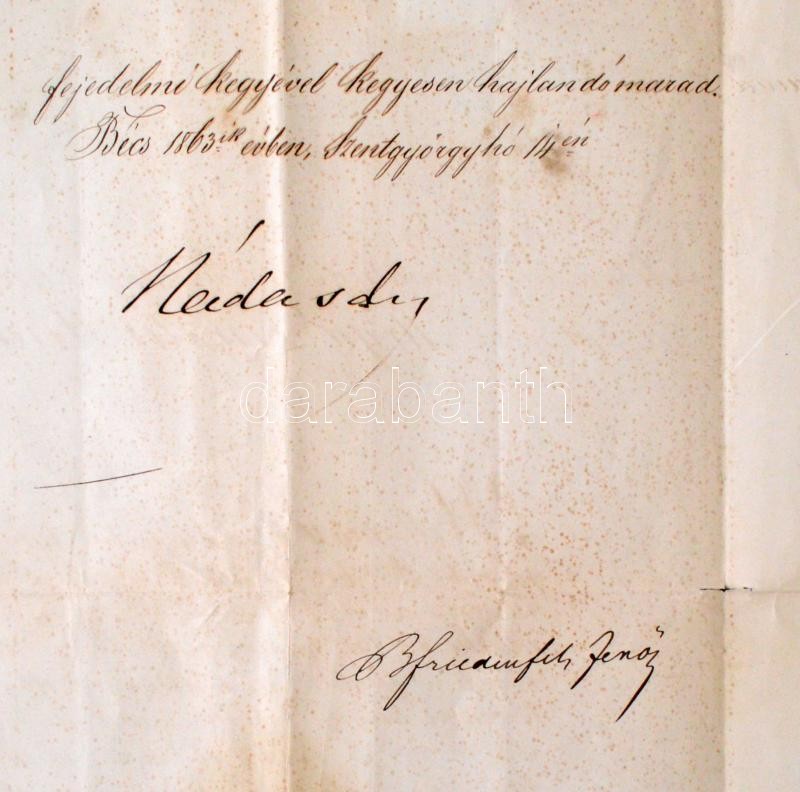 fejedelmi kegyével kegyesen hajlandó marad.
Bécs 1863ik évben, Szentgyörgyhó 14én
Nádasdy
darabanth
B Friedenfels Jenő